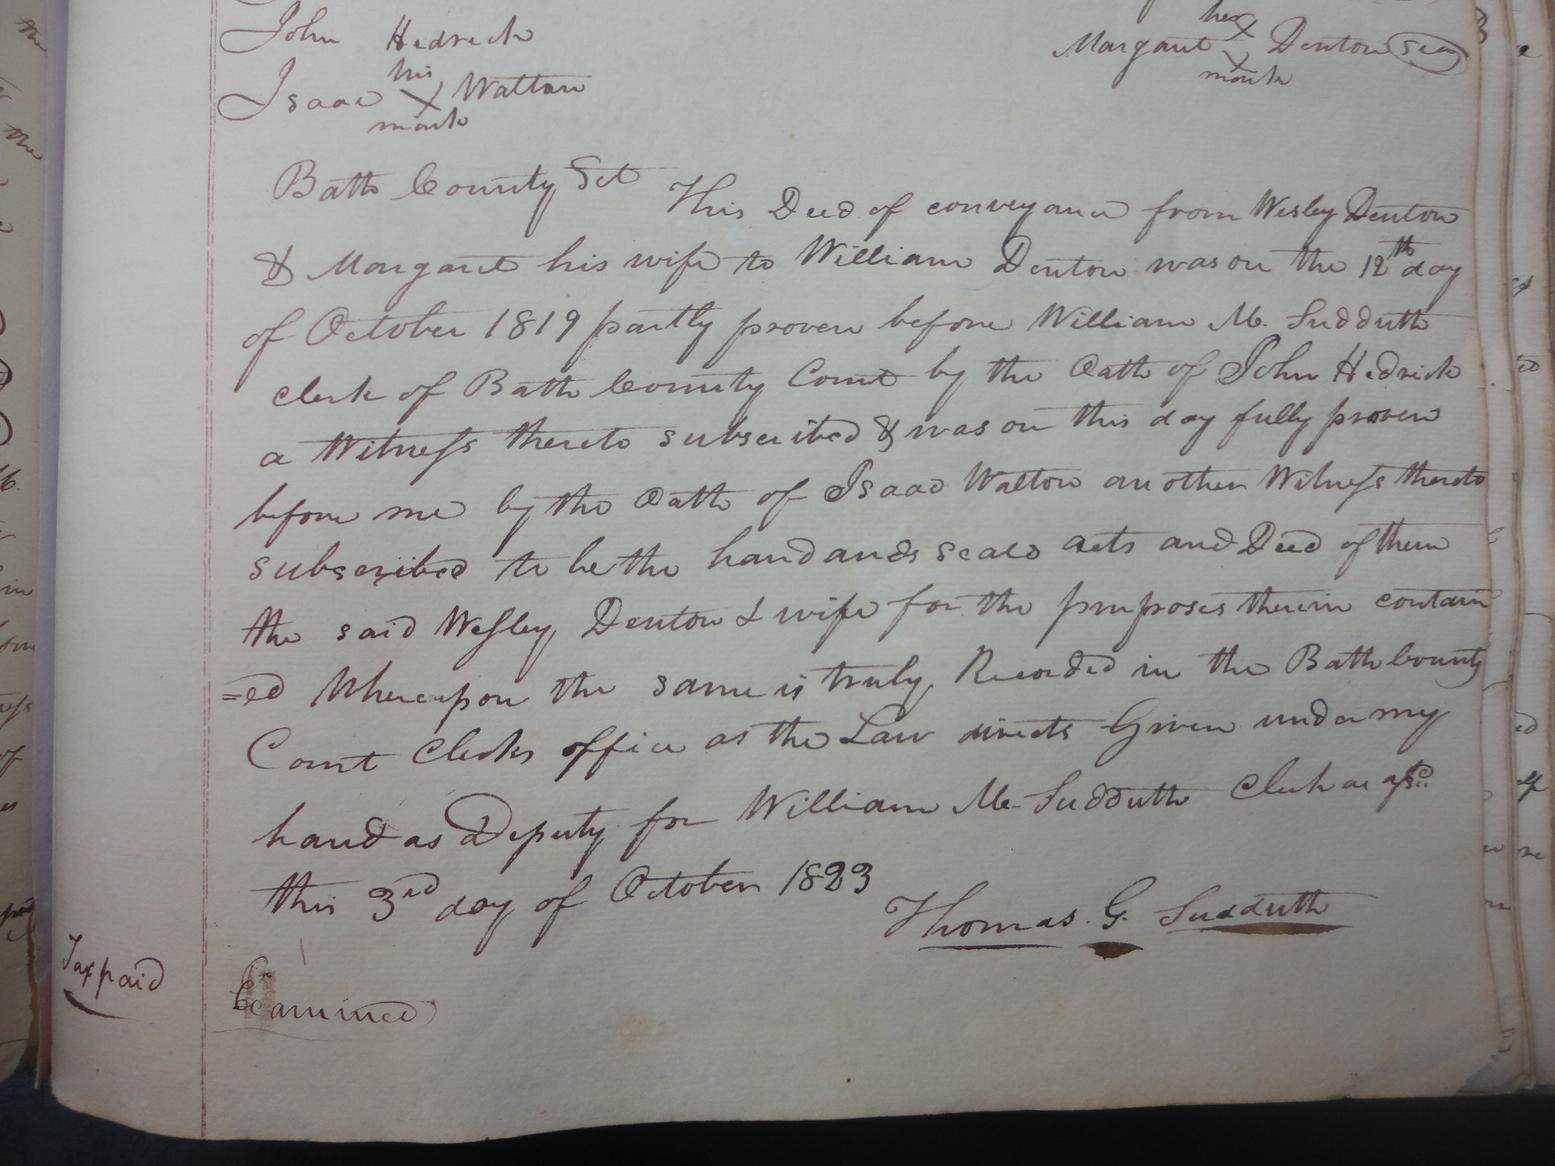 John Hedrick
her
Margaret X Denton Seal
mark
his
Isaac X Walton
mark
Bath County Sct This Deed of conveyance from Wesley Denton
& Margaret his wife to William Denton was on the 12th day
of October 1819 partly proven before William M. Sudduth
clerk of Bath County Court by the Oath of John Hedrick
a Witness thereto subscribed & was on this day fully proven
before me by the Oath of Isaac Walton another Witness thereto
subscribed to be the hand ands seals acts and Deed of them
the said Wesley Denton & wife for the purposes therein contain
=ed Whereupon the same is truly Recorded in the Bath County
Court Clerks office as the Law directs Given under my
hand as Deputy for William M. Sudduth Clerk as afsd
this 3rd day of October 1823
Thomas. G. Sudduth
Tax paid
Examined